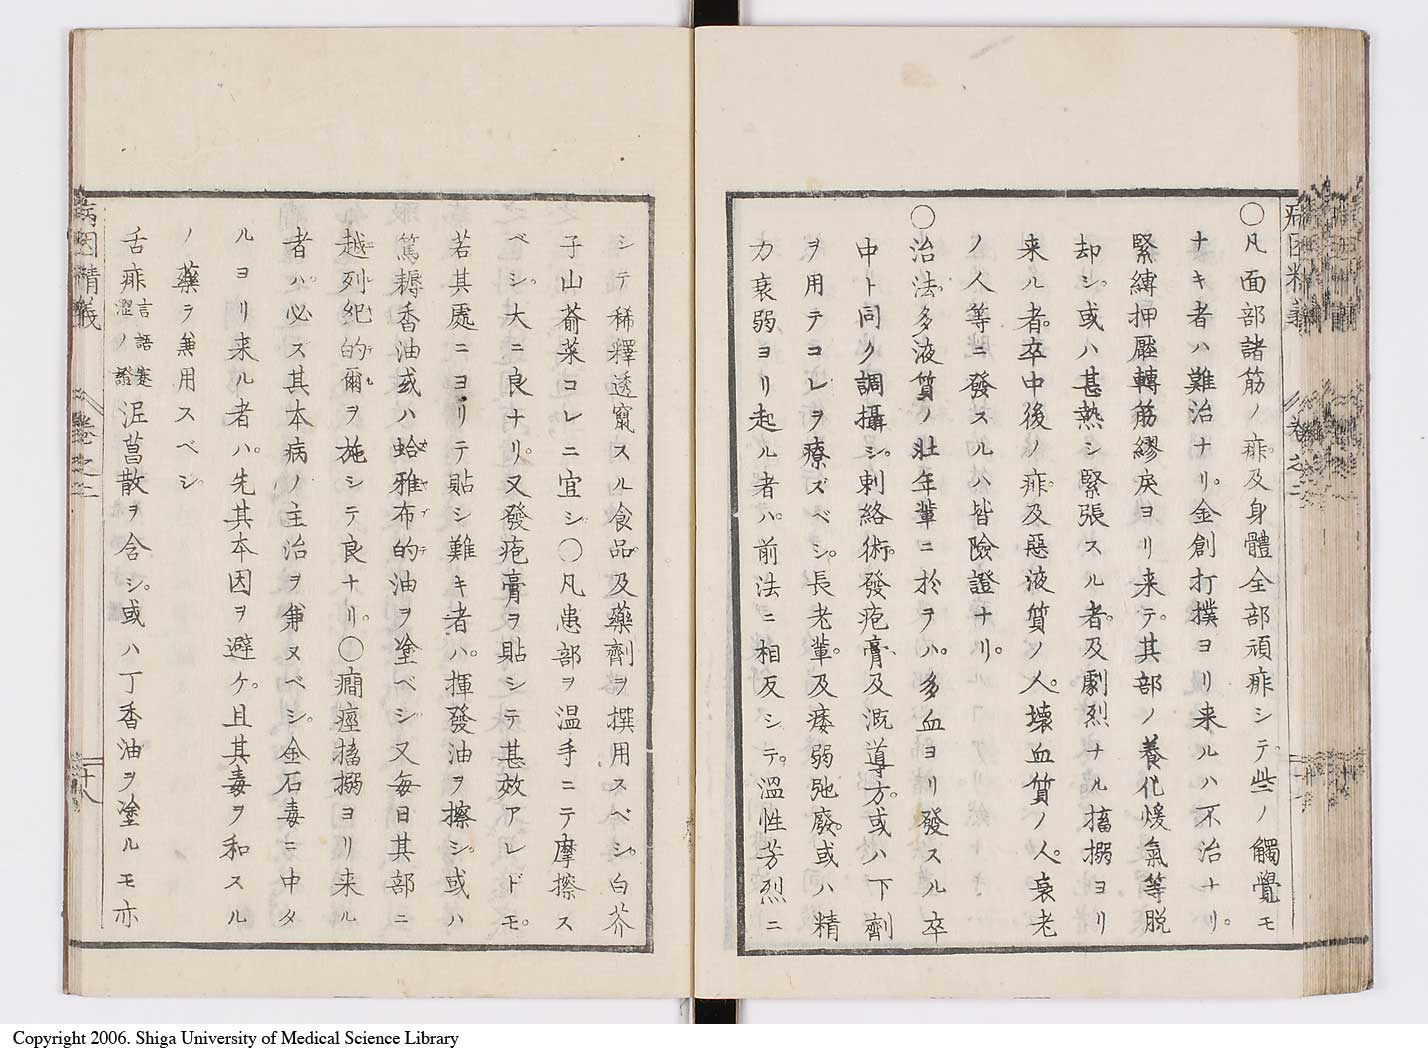 〇凡面部諸筋ノ痱及身體全部頑痱シテ些ノ觸覺モ
ナキ者ハ難治ナリ。金創打撲ヨリ来ルハ不治ナリ。
緊縛押壓轉筋繆戻ヨリ来テ。其部ノ養化煖氣等脱
却シ。或ハ甚熱シ緊張スル者。及劇烈ナル搐搦ヨリ
来ル者。卒中後ノ痱及惡液質ノ人。壊血質ノ人。衰老
ノ人等ニ發スルハ皆險證ナリ。
〇治法。多液質ノ壮年輩ニ於ヲハ。多血ヨリ發スル卒
中ト同ク調攝シ。刺絡術。發疱膏及溉導方。或ハ下劑
ヲ用テコレヲ療ズベシ。長老輩。及痿弱弛廢。或ハ精
力衰弱ヨリ起ル者ハ。前法ニ相反シテ。温性芳烈ニ
病因精義 巻之二
シテ稀釋透竄スル食品及藥劑ヲ撰用スベシ。白芥
子山萮菜コレニ宜シ〇凡患部ヲ温手ニテ摩擦ス
ベシ。大ニ良ナリ。又發疱膏ヲ貼シテ甚效アレドモ。
若其處ニヨリテ貼シ難キ者ハ。揮發油ヲ擦シ。或ハ
篤耨香油或ハ蛤雅布的油ヲ塗ベシ又毎日其部ニ
越列紀的爾ヲ施シテ良ナリ。〇癇痙搐搦ヨリ来ル
者ハ。必ズ其本病ノ主治ヲ兼ヌベシ。金石毒ニ中タ
ルヨリ来ル者ハ。先其本因ヲ避ケ。且其毒ヲ和スル
ノ藥ヲ兼用スベシ
舌痱言語蹇澀ノ證泥菖散ヲ含シ。或ハ丁香油ヲ塗ルモ亦
病因精義 巻之二 十八
Copyright 2006. Shiga University of Medical Science Library